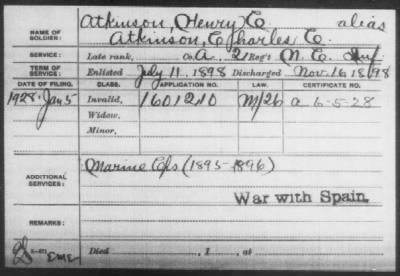 NAME OF SOLDIER: Atkinson, Henry C. alias
Atkinson, Charles C.
SERVICE: Late rank, Co. A, 2 Reg't N. E. Inf
TERM OF SERVICE: Enlisted July 11, 1898 Discharged Nov. 16 1898
DATE OF FILING. CLASS. APPLICATION NO. LAW. CERTIFICATE NO.
1928 Jan 5 Invalid, 1601210 a 6-5-28
Widow,
Minor,
ADDITIONAL SERVICES: Marine Cps (1895-1896)
War with Spain.
REMARKS:
Died , 1 , at